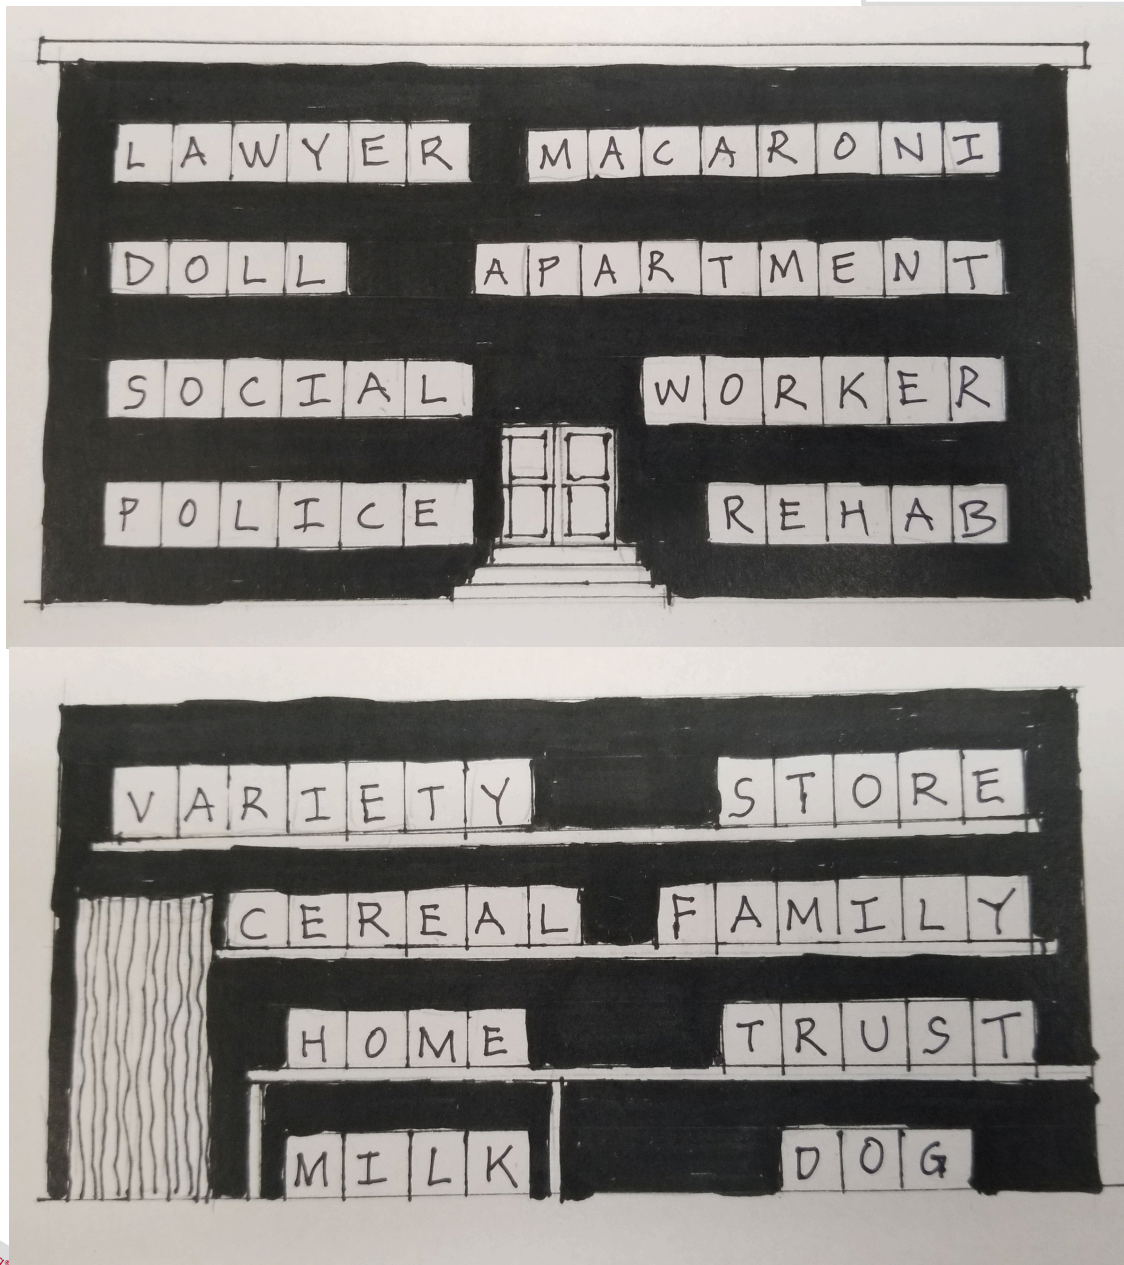 LAWYER MACARONI
DOLL APARTMENT
SOCIAL WORKER
POLICE REHAB
VARIETY STORE
CEREAL FAMILY
HOME TRUST
MILK DOG